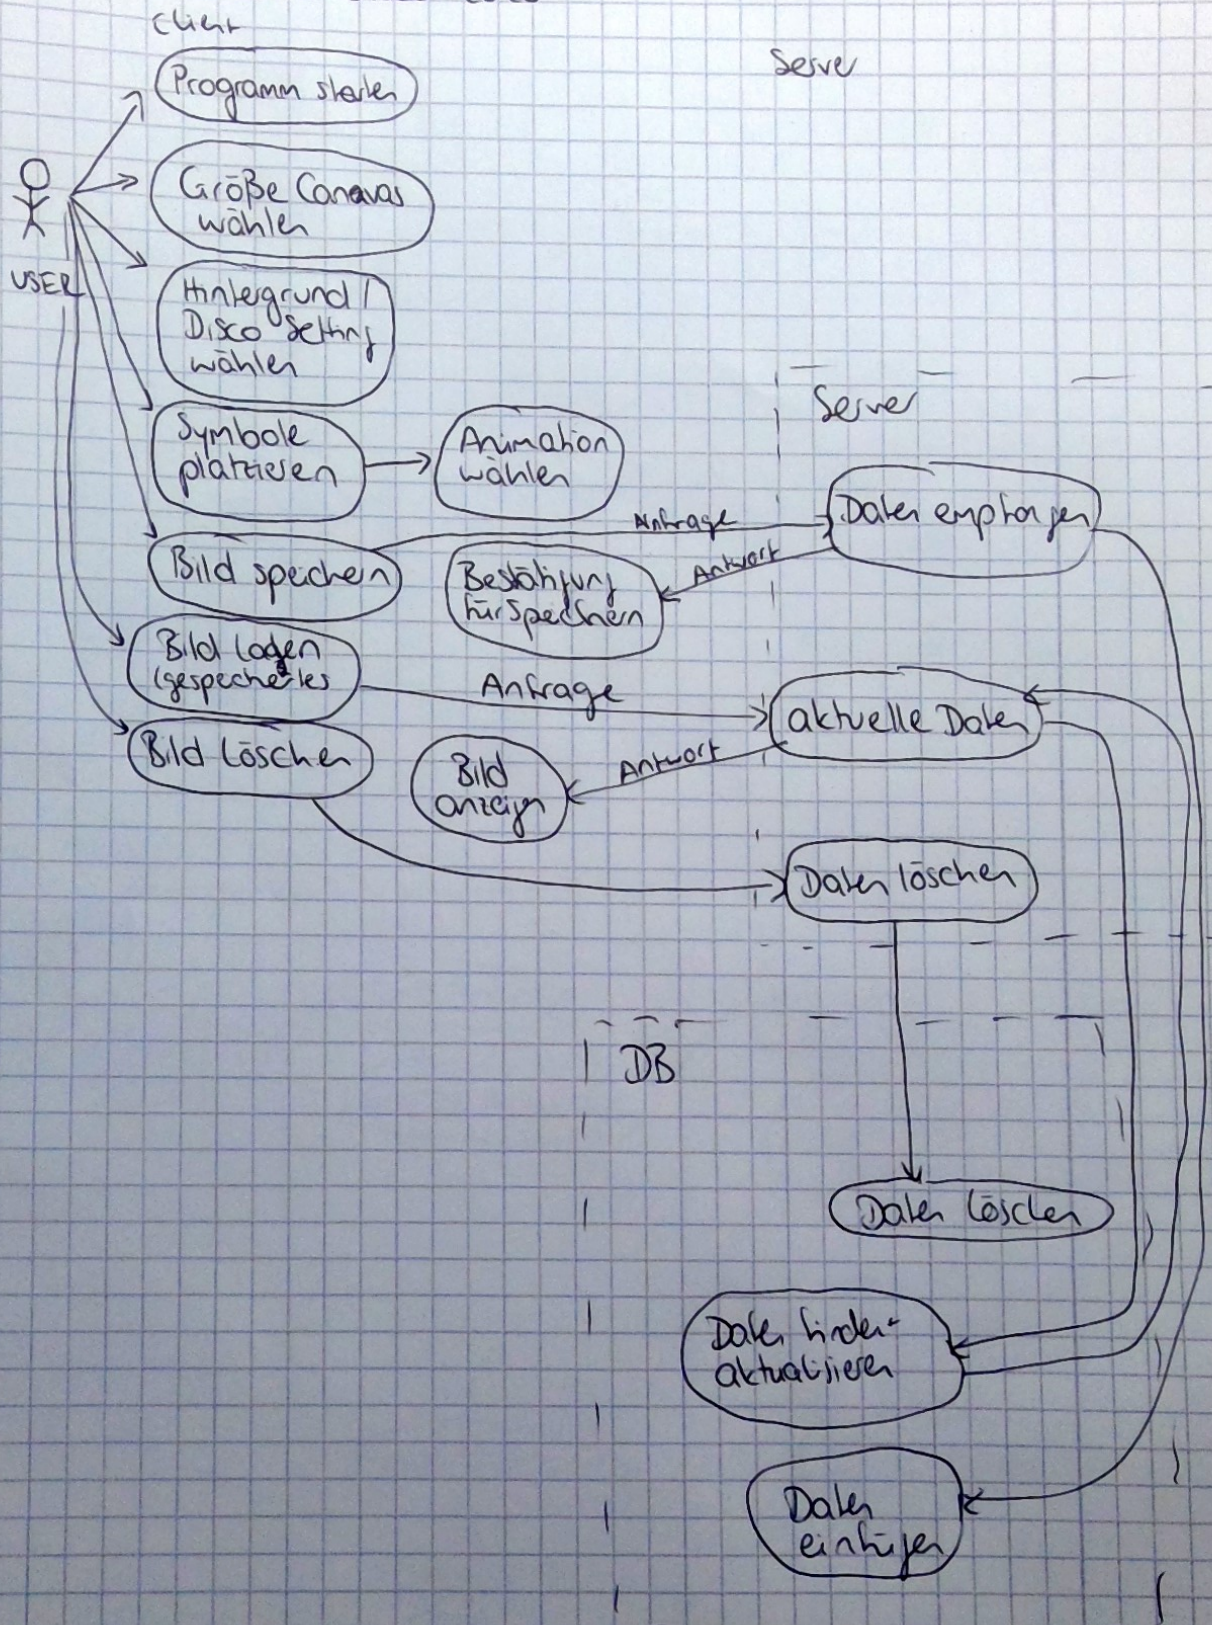 Client
Server
Programm starten
Größe Canavas
wählen
USER
Hintergrund /
Disco Setting
wählen
Server
Symbole
platzieren
Animation
wählen
Daten empfangen
Anfrage
Bild speichern
Antwort
Bestätigung
für Speichern
Bild laden
(gespeichertes
Anfrage
aktuelle Daten
Bild löschen
Antwort
Bild
anzeigen
Daten löschen
DB
Daten löschen
Daten finden-
aktualisieren
Daten
einfügen